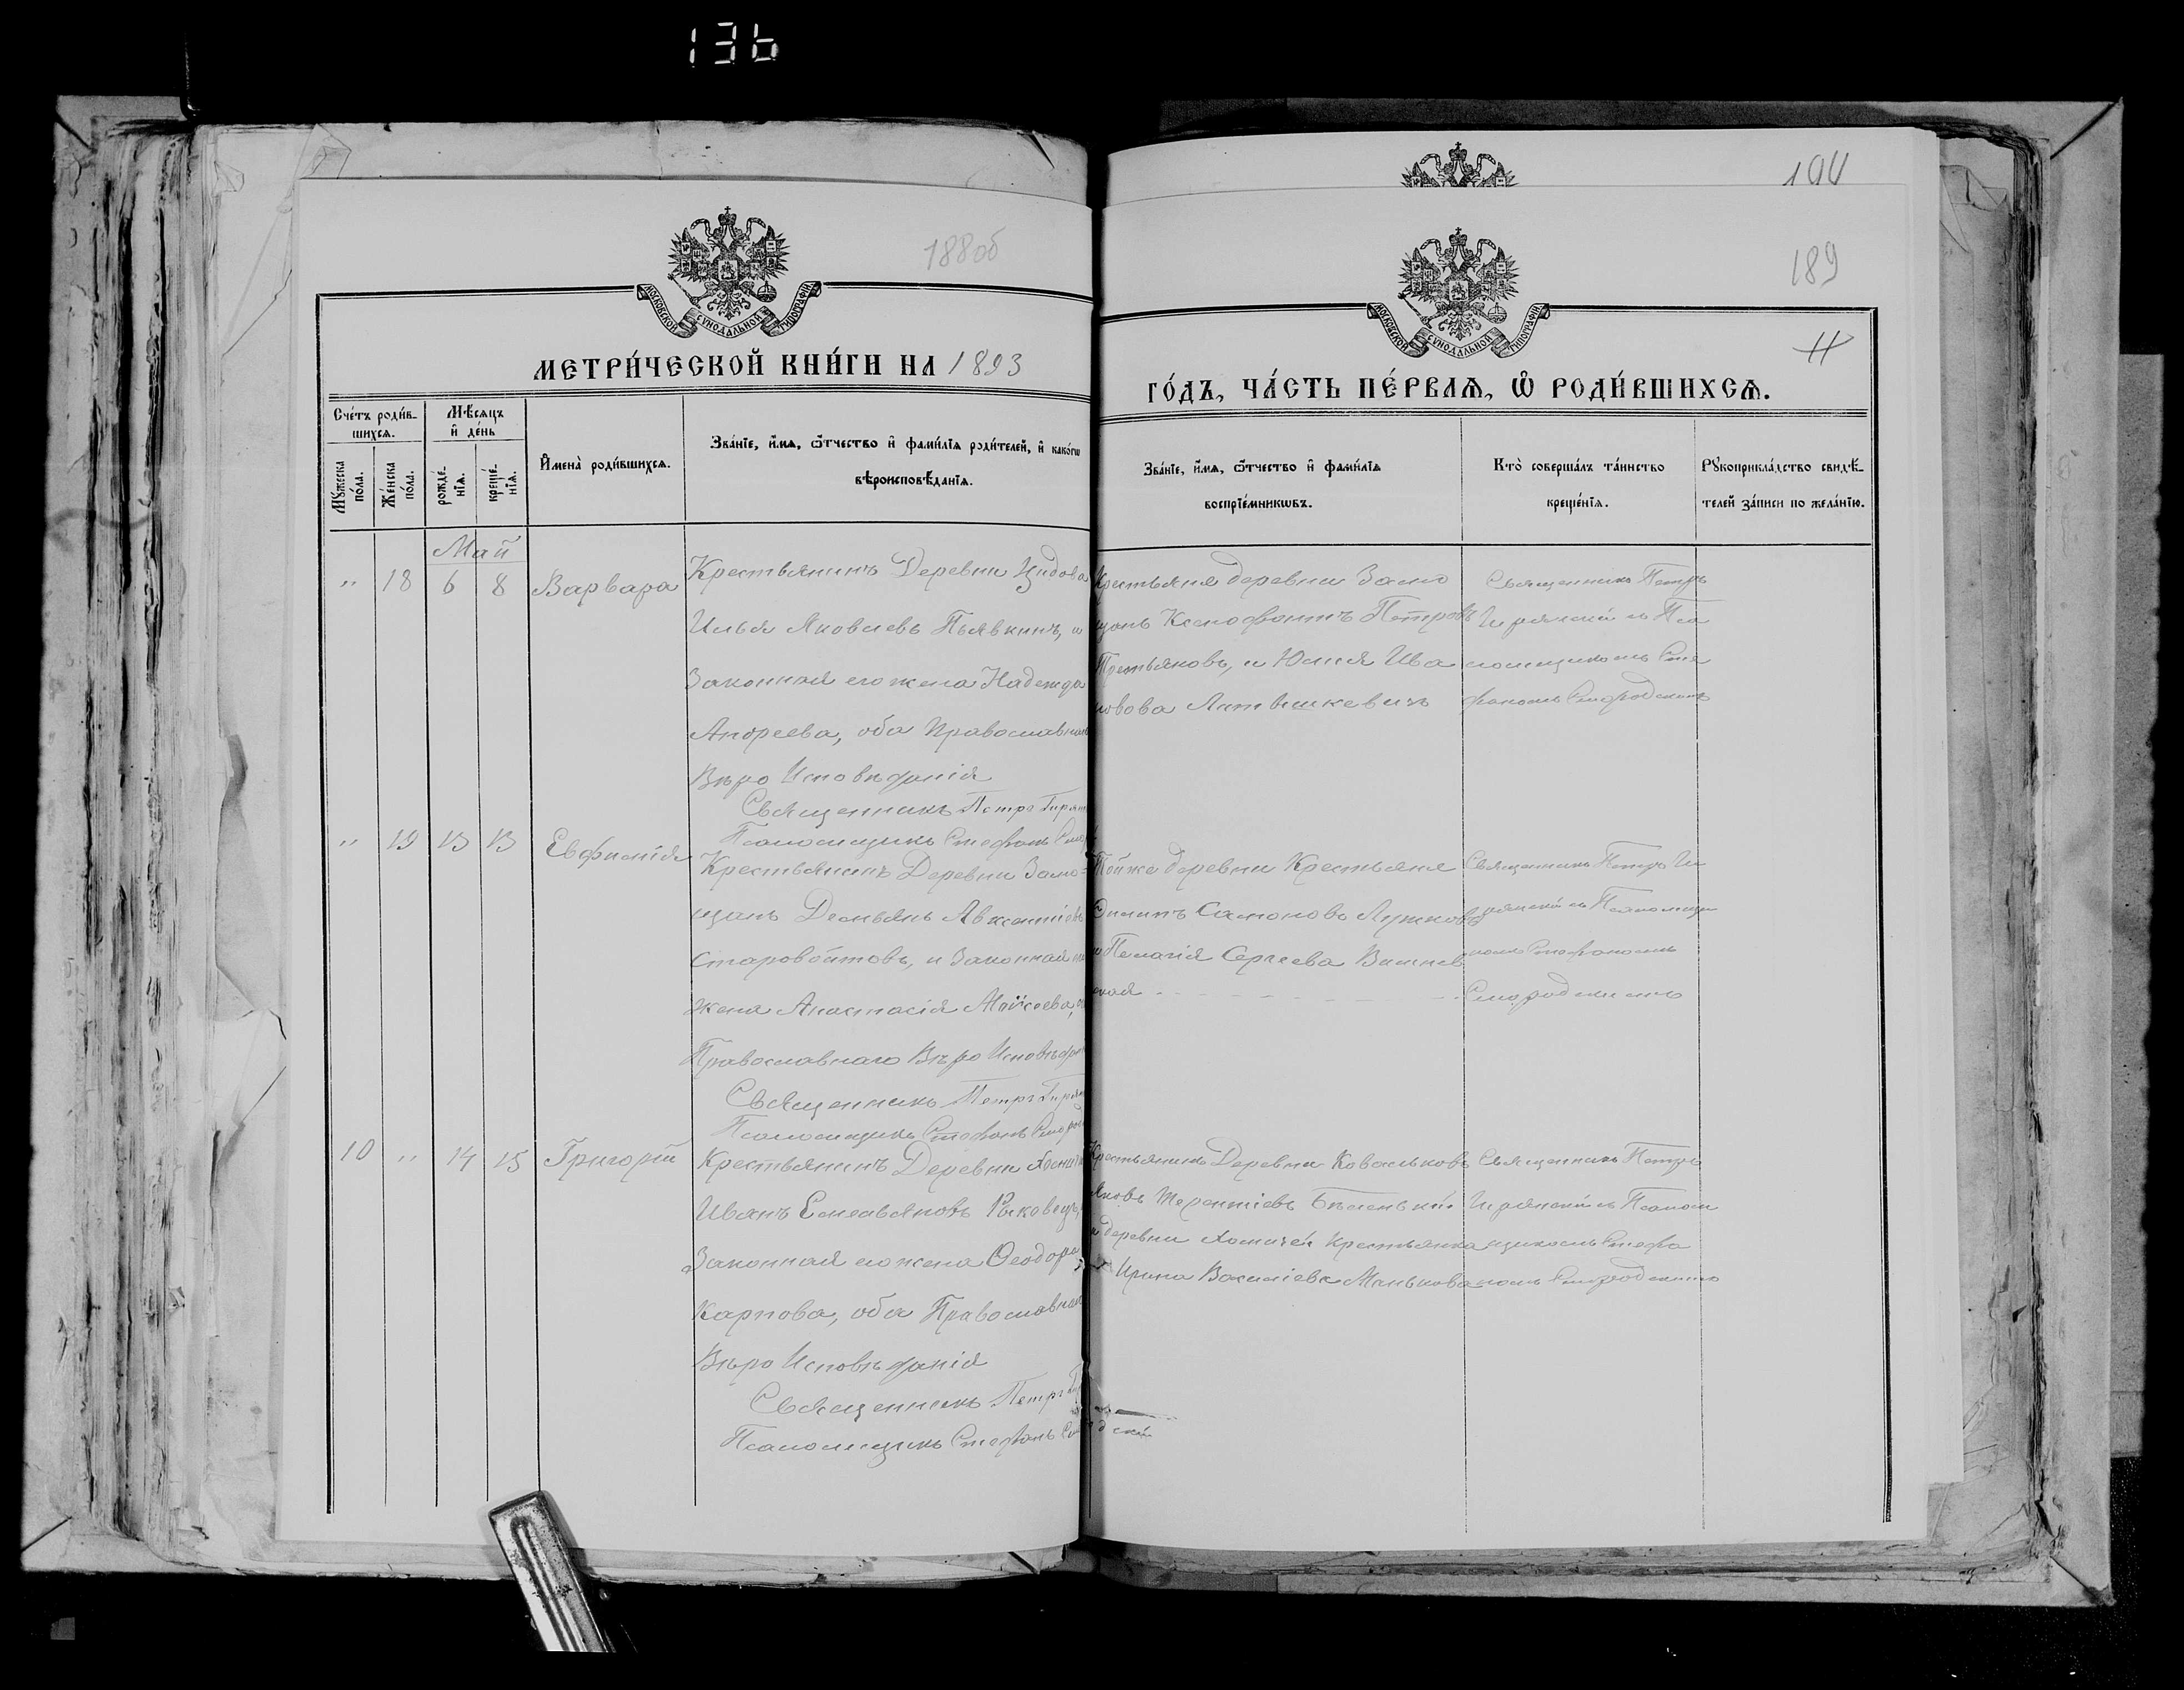 136
194
188об
189
11
МОСКОВСКОЙ СѴНОДАЛЬНОЙ ТИПОГРАФІИ
МОСКОВСКОЙ СѴНОДАЛЬНОЙ ТИПОГРАФІИ
МЕТРИ́ЧЕСКОЙ КНИ́ГИ НА 1893
ГО́ДЪ, ЧА́СТЬ ПЕ́РВАѦ, Ѿ РОДИ́ВШИХСѦ.
Сче́тъ роди́в-
шихсѧ.
Мѣ́сяцъ
и҆ де́нь
Мꙋ́жеска
по́ла.
Же́нска
по́ла.
рожде́-
нїѧ.
креще́-
нїѧ.
И҆мена̀ роди́вшихсѧ.
Зва́нїе, и҆́мѧ, ѻ҆́тчество и҆ фами́лїѧ роди́телей, и҆ како́гѡ
вѣроисповѣ́данїѧ.
Зва́нїе, и҆́мѧ, ѻ҆́тчество и҆ фами́лїѧ
воспрїе́мникѡвъ.
Кто̀ соверша́лъ та́инство
креще́нїѧ.
Рꙋкоприкла́дство свидѣ́-
телей за́писи по жела́нїю.
Май
" 18 6 8 Варвара
Крестьянинъ Деревни
Илья Яковлевъ Пьявкинъ, и
Законная его жена Надежда
Андреева, оба Православнаго
Вѣро Исповѣданія
Священникъ Петръ
Псаломщикъ Стефанъ
Крестьяне деревни Замо
щанъ Ксенофонтъ Петровъ
Третьяковъ, и Юлія Ива
новова Литвишкевичъ
Священникъ Петръ
съ Пса
ломщикомъ Сте
фаномъ Смородскимъ
" 19 13 13 Евфимія
Крестьянинъ Деревни Замо-
щанъ Демьянъ Авксентіевъ
Старовойтовъ, и Законная его
жена Анастасія Мойсеева,
Православнаго Вѣро Исповѣдан
Священникъ Петръ
Псаломщикъ Стефанъ
Той же деревни Крестьяне
Филипъ Самоновъ Лужковъ
и Пелагія Сергеева Вишнев
ская
Священникъ Петръ
съ Псаломщи
комъ Стефаномъ
Смородскимъ
10 " 14 15 Григорій
Крестьянинъ Деревни
Иванъ Емельяновъ Рыковецъ,
Законная его жена Ѳеодора
Карпова, оба Православнаго
Вѣро Исповѣданія
Священникъ Петръ
Псаломщикъ Стефанъ
Крестьянинъ Деревни Ковальковъ
Яковъ Терентіевъ Бѣленькій
и деревни Хомичей крестьянка
Ирина Василіева Манькова
Священникъ Петръ
съ Псалом
щикомъ Стефа
номъ Смородскимъ